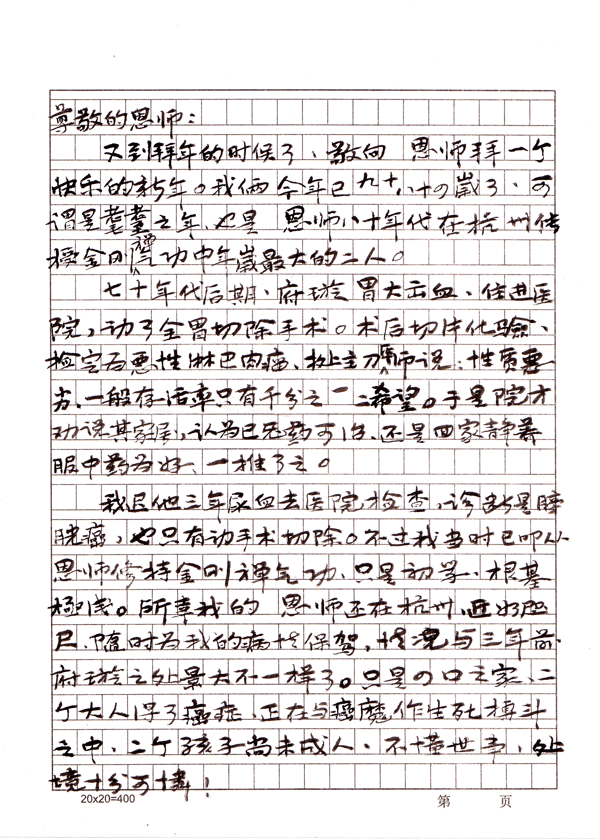 尊敬的恩师：
又到拜年的时候了、敬向 恩师拜一个
快乐的新年。我俩今年已九十、八十四歲了、可
谓是耄耋之年、也是 恩师八十年代在杭州传
授金刚禅气功中年歲最大的二人。
七十年代后期、府璇胃大出血、住进医
院，动了全胃切除手术。术后切片化驗、
检定为悪性淋巴肉瘤、据主刀医师说：性质悪
劣、一般存活率只有千分之一二希望。于是院方
劝说其家属，认为已无药可治、还是回家静养
服中药为好、一推了之。
我迟他三年尿血去医院检查，诊断是膀
胱癌，也只有动手术切除。不过我当时已叩从
恩师修持金刚禅气功、只是初学、根基
极浅。所幸我的 恩师还在杭州、近好咫
尺、随时为我的病情保驾，情况与三年前
府璇之处景大不一样了。只是四口之家、二
个大人得了癌症、正在与癌魔作生死搏斗
之中、二个孩子尚未成人、不懂世事，处
境十分可怜！
20x20=400
第 页